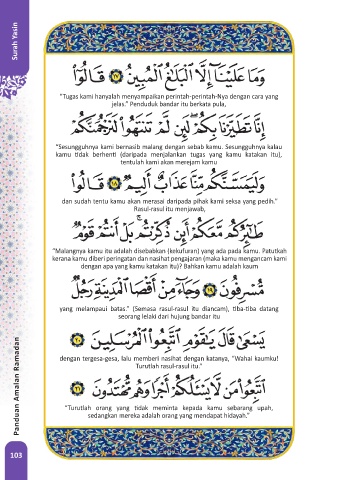 Surah Yasin
وَمَا عَلَيْنَآ إِلَّا ٱلْبَلَٰغُ ٱلْمُبِينُ ۝١٧ قَالُوٓا۟
“Tugas kami hanyalah menyampaikan perintah-perintah-Nya dengan cara yang
jelas.” Penduduk bandar itu berkata pula,
إِنَّا تَطَيَّرْنَا بِكُمْ ۖ لَئِن لَّمْ تَنتَهُوا۟ لَنَرْجُمَنَّكُمْ
“Sesungguhnya kami bernasib malang dengan sebab kamu. Sesungguhnya kalau
kamu tidak berhenti (daripada menjalankan tugas yang kamu katakan itu),
tentulah kami akan merejam kamu
وَلَيَمَسَّنَّكُم مِّنَّا عَذَابٌ أَلِيمٌ ۝١٨ قَالُوا۟
dan sudah tentu kamu akan merasai daripada pihak kami seksa yang pedih.”
Rasul-rasul itu menjawab,
طَٰٓئِرُكُم مَّعَكُمْ ۚ أَئِن ذُكِّرْتُم ۚ بَلْ أَنتُمْ قَوْمٌ
“Malangnya kamu itu adalah disebabkan (kekufuran) yang ada pada kamu. Patutkah
kerana kamu diberi peringatan dan nasihat pengajaran (maka kamu mengancam kami
dengan apa yang kamu katakan itu)? Bahkan kamu adalah kaum
مُّسْرِفُونَ ۝١٩ وَجَآءَ مِنْ أَقْصَا ٱلْمَدِينَةِ رَجُلٌ
yang melampaui batas.” (Semasa rasul-rasul itu diancam), tiba-tiba datang
seorang lelaki dari hujung bandar itu
يَسْعَىٰ قَالَ يَٰقَوْمِ ٱتَّبِعُوا۟ ٱلْمُرْسَلِينَ ۝٢٠
dengan tergesa-gesa, lalu memberi nasihat dengan katanya, “Wahai kaumku!
Turutlah rasul-rasul itu.”
ٱتَّبِعُوا۟ مَن لَّا يَسْـَٔلُكُمْ أَجْرًا وَهُم مُّهْتَدُونَ ۝٢١
“Turutlah orang yang tidak meminta kepada kamu sebarang upah,
sedangkan mereka adalah orang yang mendapat hidayah.”
Panduan Amalan Ramadan
103